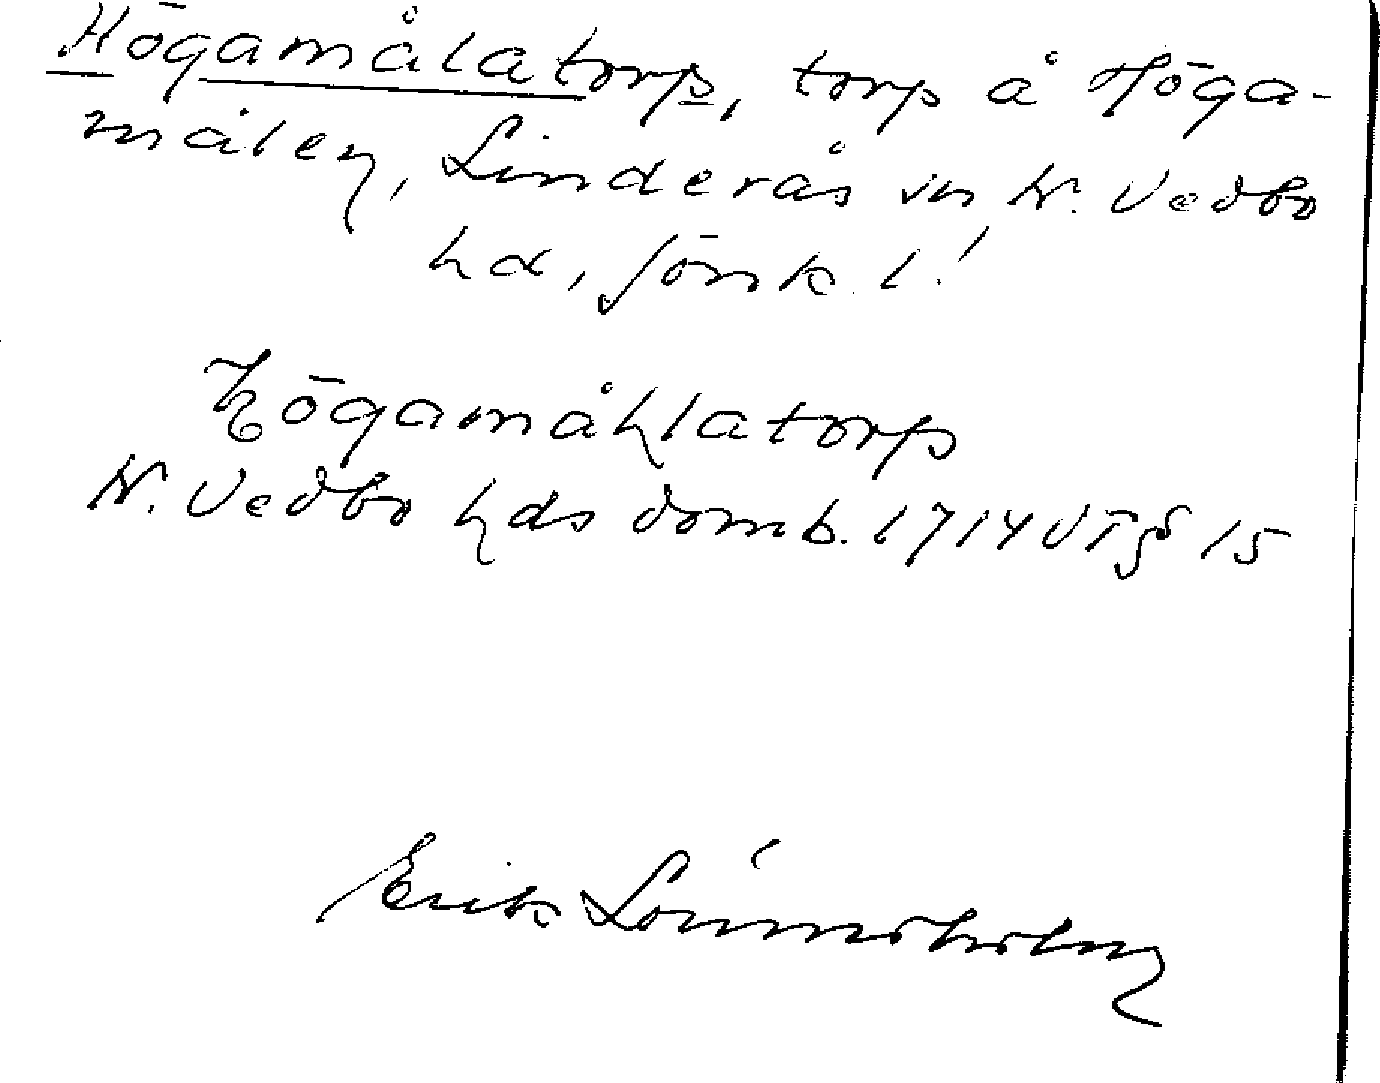 Högamålatorp, torp å Höga-
målen, Linderås sn N. Vedbo
hd, Jönk l.
Högamåhlatorp
N. Vedbo hds domb. 1714 VT § 15
Erik Lönnsholm